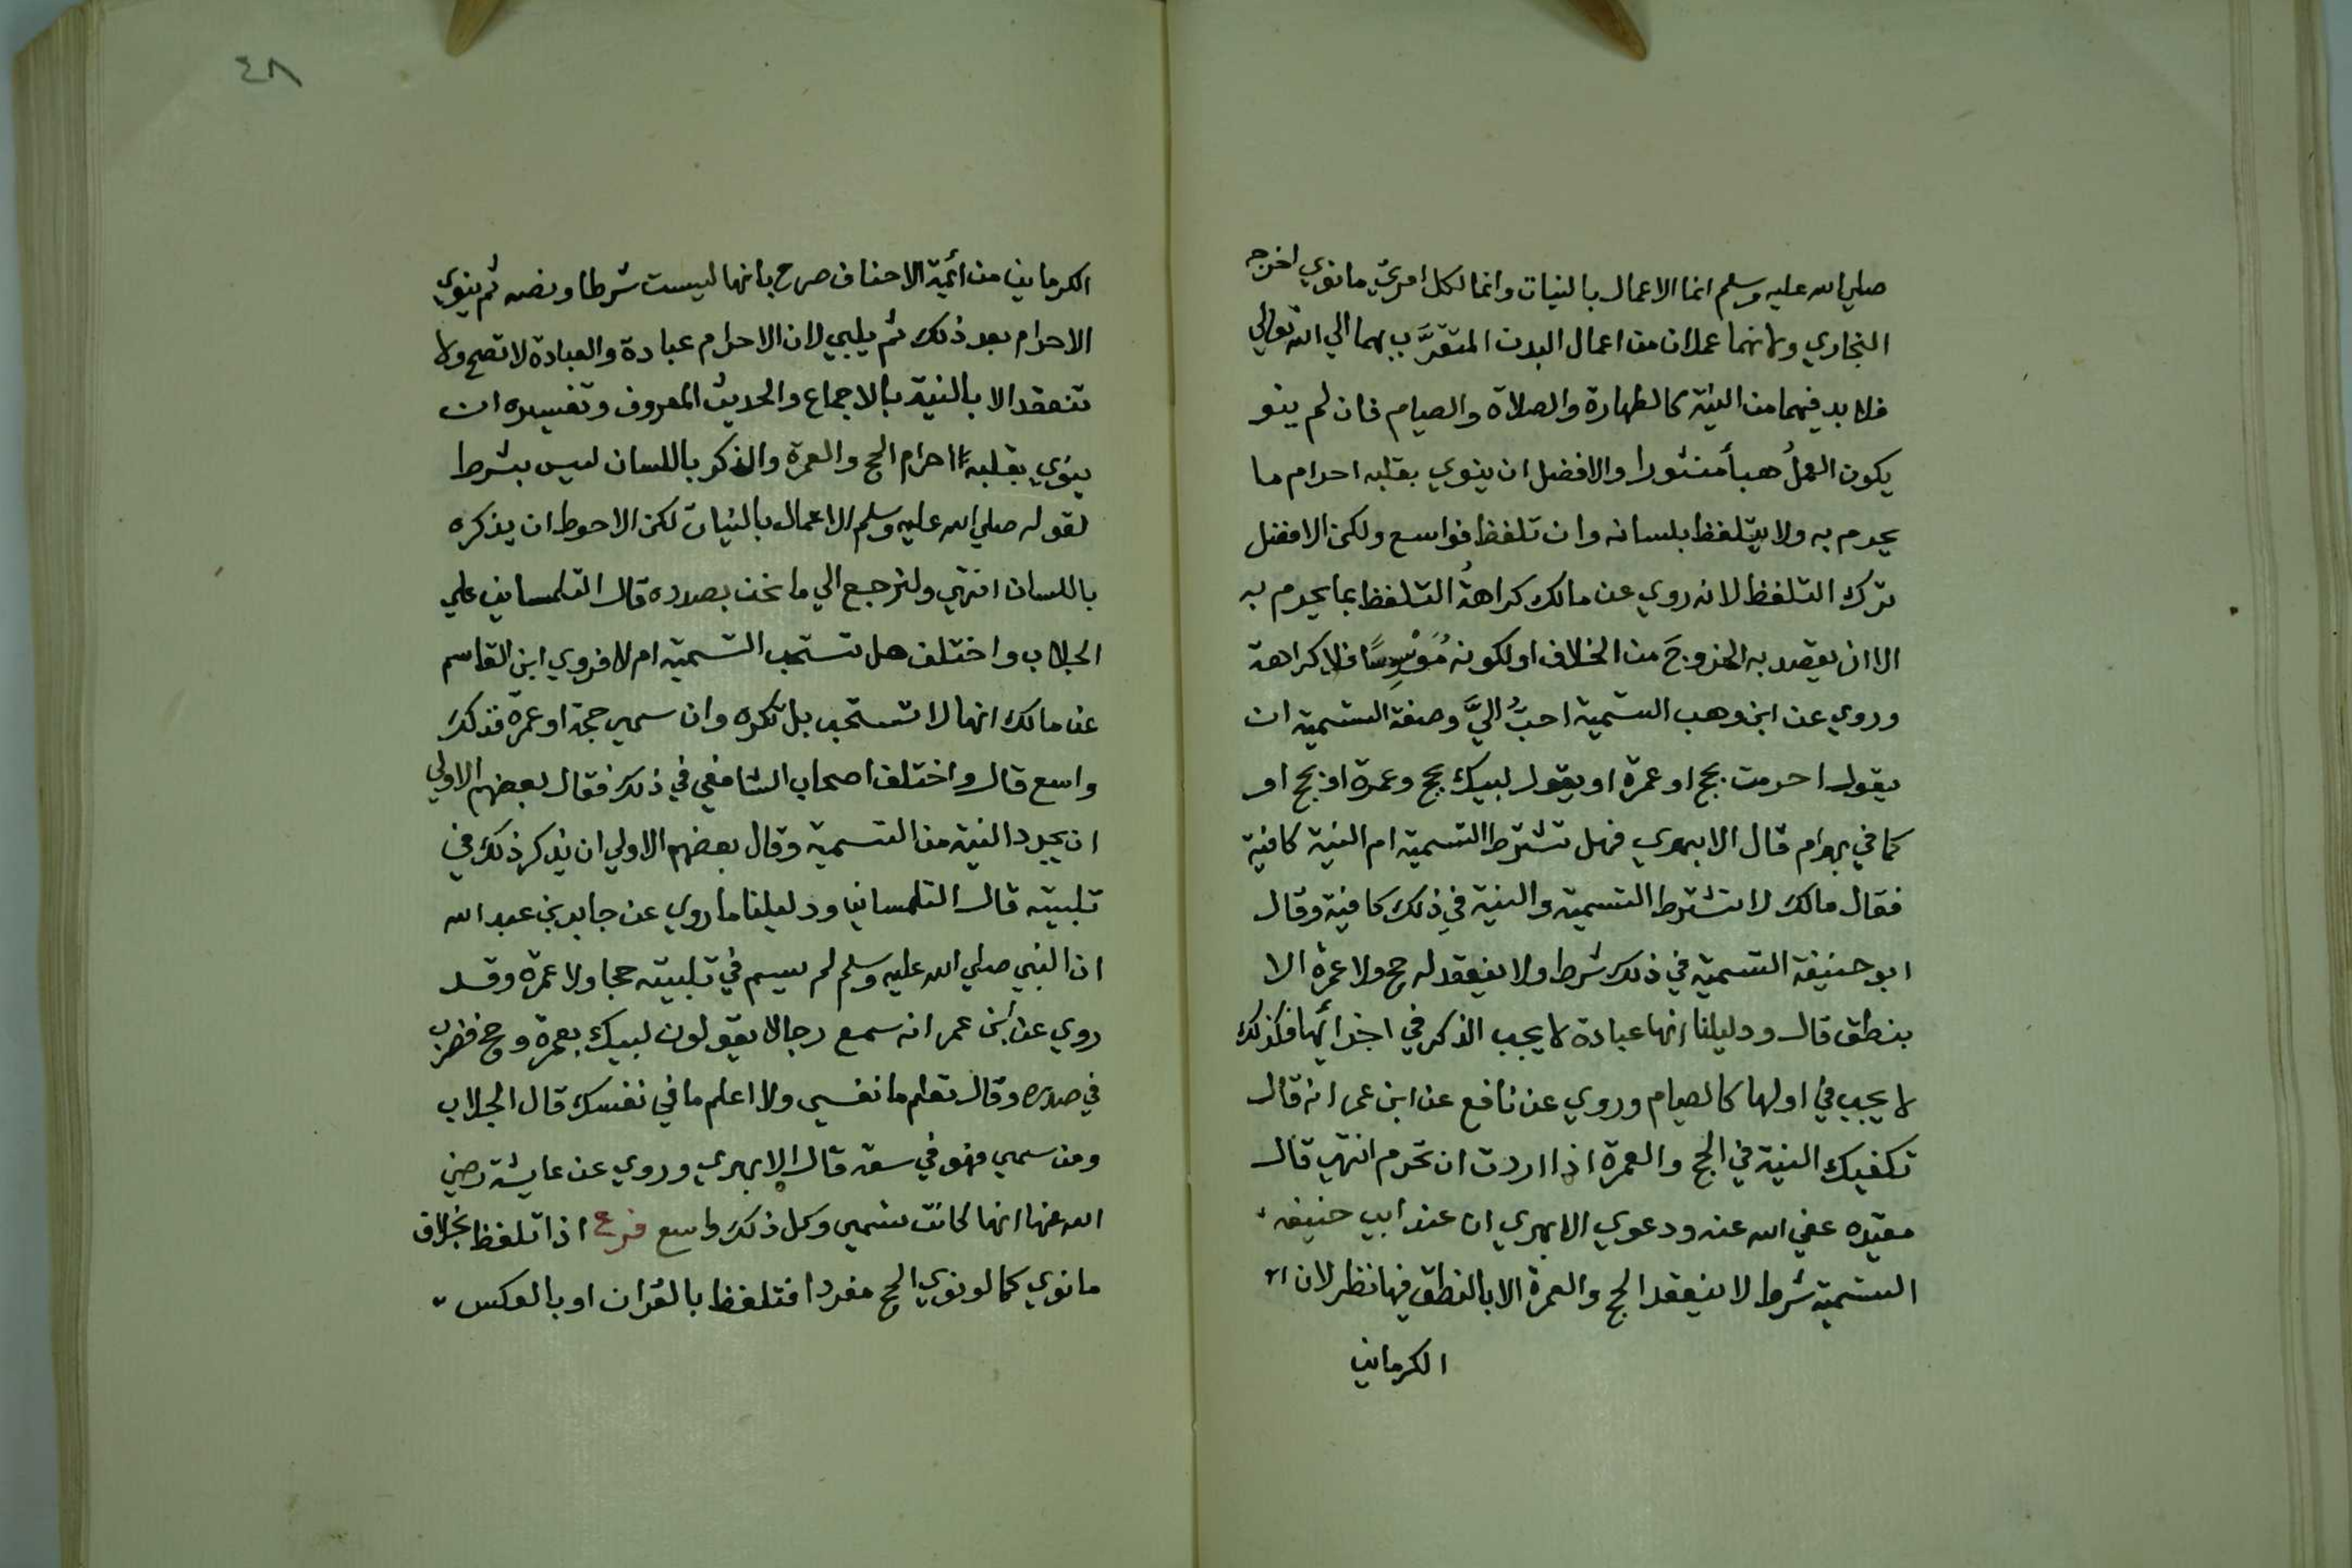 صلي الله عليه وسلم انما الاعمال بالنيات وانما لكل امرئ ما نوي اخرجه
البخاري ولانهما عملان من اعمال البدن المتقرَّب بهما الي الله تعالي
فلا بد فيهما من النية كالطهارة والصلاة والصيام فان لم ينو
يكون العملُ هبأ منثورا والافضل ان ينوي بقلبه احرام ما
يحرم به ولا يتلفظ بلسانه وان تلفظ فواسع ولكن الافضل
ترك التلفظ لانه روي عن مالك كراهةُ التلفظ بما يحرم به
الا ان يقصد به الخروجَ من الخلاف او لكونه مُوَسْوِسًا فلا كراهة
وروي عن ابن وهب التسمية احبُّ اليَّ وصفة التسمية ان
يقول احرمت بحج او عمرة او يقول لبيك بحج وعمرة او بحج او
كما في بهرام قال الابهري فهل تشترط التسمية ام النية كافية
فقال مالك لا تشترط التسمية والنية في ذلك كافية وقال
ابو حنيفة التسمية في ذلك شرط ولا ينعقد له حج ولا عمرة الا
بنطق قال ودليلنا انها عبادة لا يجب الذكر في اخرائها فكذلك
لا يجب في اولها كالصيام وروي عن نافع عن ابن عمر انه قال
تكفيك النية في الحج والعمرة اذا اردت ان تحرم انتهي قال
مقيده عفي الله عنه ودعوي الابهري ان عند ابي حنيفه
التسمية شرط لا ينعقد الحج والعمرة الا بالنطق فيها نظر لان
الكرماني
٤٨
الكرماني من أئمة الاحناف صرح بانها ليست شرطا ونصه ثم ينوي
الاحرام بعد ذلك ثم يلبي لان الاحرام عبادة والعبادة لا تصح ولا
تنعقد الا بالنية بالاجماع والحديث المعروف وتفسيره ان
ينوي بقلبه احرام الحج والعمرة والذكر باللسان ليس بشرط
لقوله صلي الله عليه وسلم الاعمال بالنيات لكن الاحوط ان يذكره
باللسان انتهي ولنرجع الي ما نحن بصدده قال التلمساني علي
الجلاب واختلف هل تستحب التسمية ام لا فروي ابن القاسم
عن مالك انها لا تستحب بل تكره وان سمي حجة او عمرة فذلك
واسع قال واختلف اصحاب الشافعي في ذلك فقال بعضهم الاولي
ان يجرد النية من التسمية وقال بعضهم الاولي ان يذكر ذلك في
تلبيته قال التلمساني ودليلنا ما روي عن جابر بن عبد الله
ان النبي صلي الله عليه وسلم لم يسم في تلبيته حجا ولا عمرة وقد
روي عن ابن عمر انه سمع رجالا يقولون لبيك بعمرة وحج فضرب
في صدره وقال تعلم ما نفسي ولا اعلم ما في نفسك قال الجلاب
ومن سمي فهو في سعة قال الابهري وروي عن عايشة رضي
الله عنها انها كانت تسمي وكل ذلك واسع فرع اذا تلفظ بخلاف
ما نوي كما لو نوي الحج مفردا فتلفظ بالقران او بالعكس